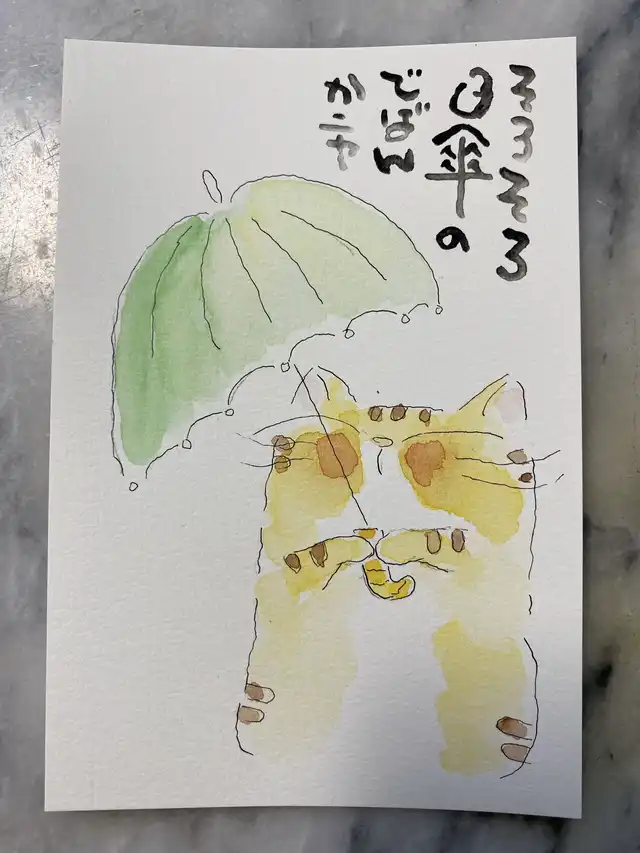 そろそろ
日傘の
でばん
かニャ